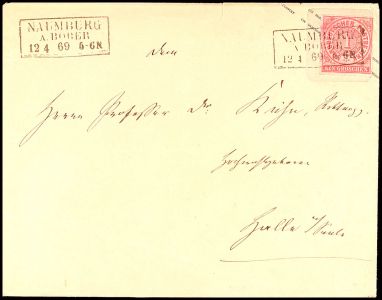 NAUMBURG
A. BOBER
12 4 69 6-6N.
NAUMBURG
A. BOBER
12 4 69 6-6N.
EIN GROSCHEN
Dem
Herrn Professor Dr. Kühn,
Hochwohlgeboren
Halle a/Saale